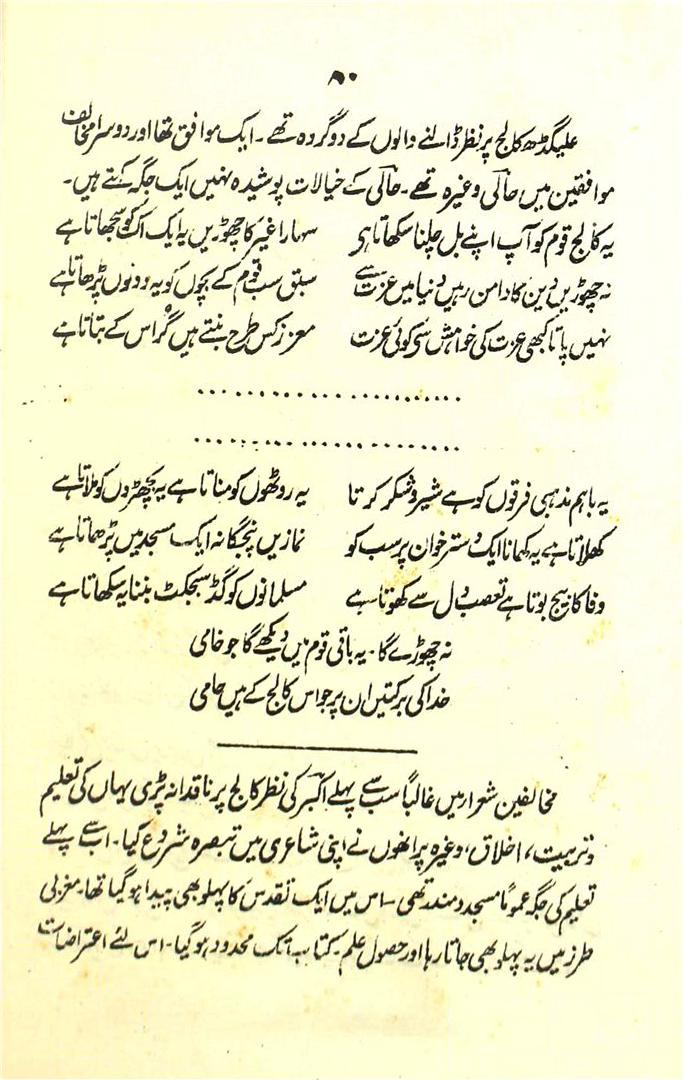 ۸۰
علیگڑھ کالج پر نظر ڈالنے والوں کے دو گروہ تھے۔ ایک موافق تھا اور دوسرا مخالف
موافقین میں حالی وغیرہ تھے۔ حالی کے خیالات پوشیدہ نہیں ایک جگہ کہتے ہیں۔
یہ کالج قوم کو آپ اپنے بل چلنا سکھاتا ہی سہارا غیر کا چھوڑیں یہ ایک اک کو سجھاتا ہے
نہ چھوڑیں دین کا دامن رہیں دنیا میں عزت سے سبق سب قوم کے بچوں کو یہ دونوں پڑھاتا ہے
نہیں پاتا کبھی عزت کی خواہش سی کوئی عزت معزز کس طرح بنتے ہیں گُر اس کے بتاتا ہے
........................
........................
یہ باہم مذہبی فرقوں کو ہے شیر و شکر کرتا یہ روٹھوں کو مناتا ہے یہ بچھڑوں کو ملاتا ہے
کھلاتا ہے یہ کھانا ایک دسترخوان پر سب کو نمازیں پنجگانہ ایک مسجد میں پڑھاتا ہے
وفا کا بیج بوتا ہے تعصب دل سے کھوتا ہے مسلمانوں کو گڈ سبجکٹ بننا یہ سکھاتا ہے
نہ چھوڑے گا۔ یہ باقی قوم میں دیکھے گا جو خامی
خدا کی برکتیں ان پر جو اس کالج کے ہیں حامی
مخالفین شعراء میں غالباً سب سے پہلے اکبر کی نظر کالج پر ناقدانہ پڑی یہاں کی تعلیم
و تربیت، اخلاق، وغیرہ پر انھوں نے اپنی شاعری میں تبصرہ شروع کیا۔ اب سے پہلے
تعلیم کی جگہ عموماً مسجد و مندر تھی۔ اس میں ایک تقدس کا پہلو بھی پیدا ہو گیا تھا۔ مغربی
طرز میں یہ پہلو بھی جاتا رہا اور حصول علم۔ کتاب تک محدود ہو گیا۔ اس لئے اعتراضات